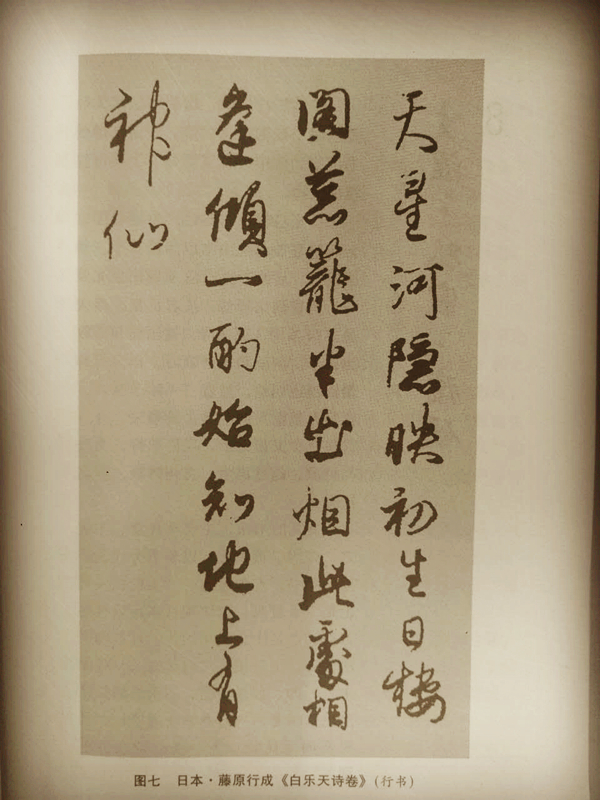 天星河隐映初生日樓
閣葱籠半出烟此處相
逢傾一酌始知地上有
神仙
图七 日本·藤原行成《白乐天诗卷》(行书)